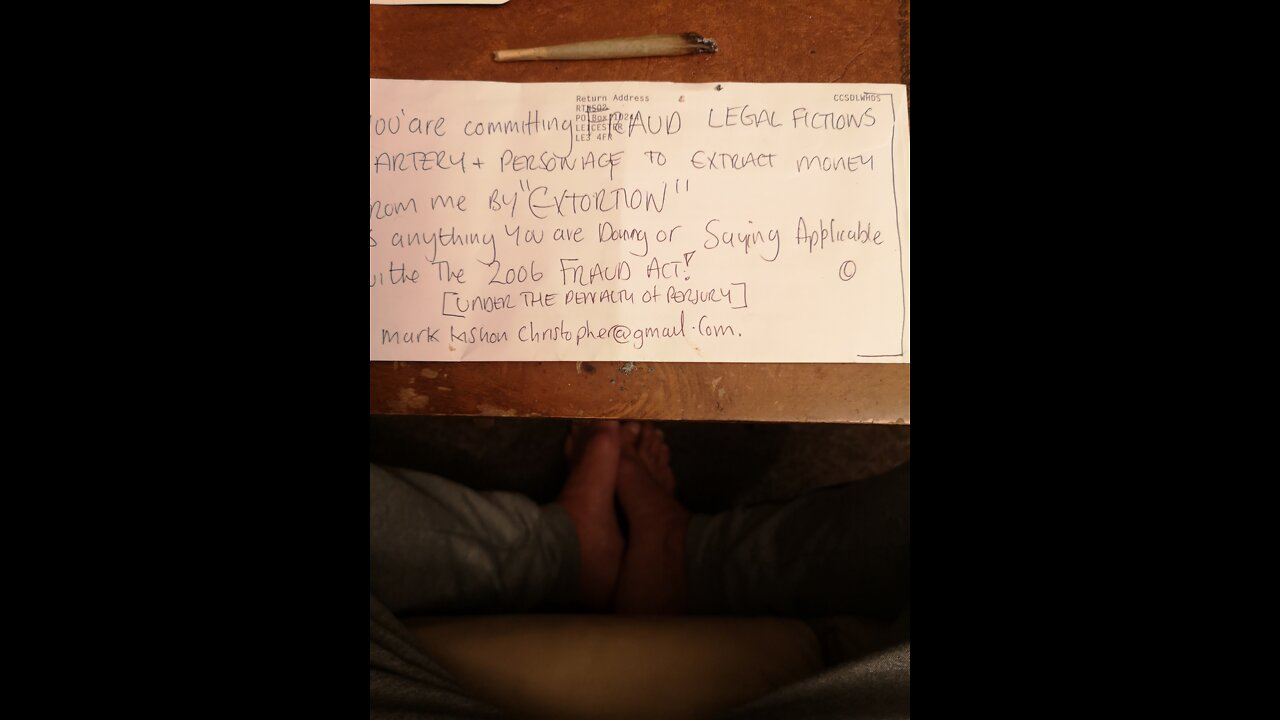 Return Address
CCSDLWHDS
RTN502
PO Box
LEICESTER
LE3 4FR
You'are committing FRAUD LEGAL FICTIONS
ARTERY + PERSONAGE TO EXTRACT MONEY
rom me BY "EXTORTION"
s anything You are Doinng or Saying Applicable
withe The 2006 FRAUD ACT!
©
[UNDER THE PENALTY Of PERJURY]
mark christopher@gmail.Com.